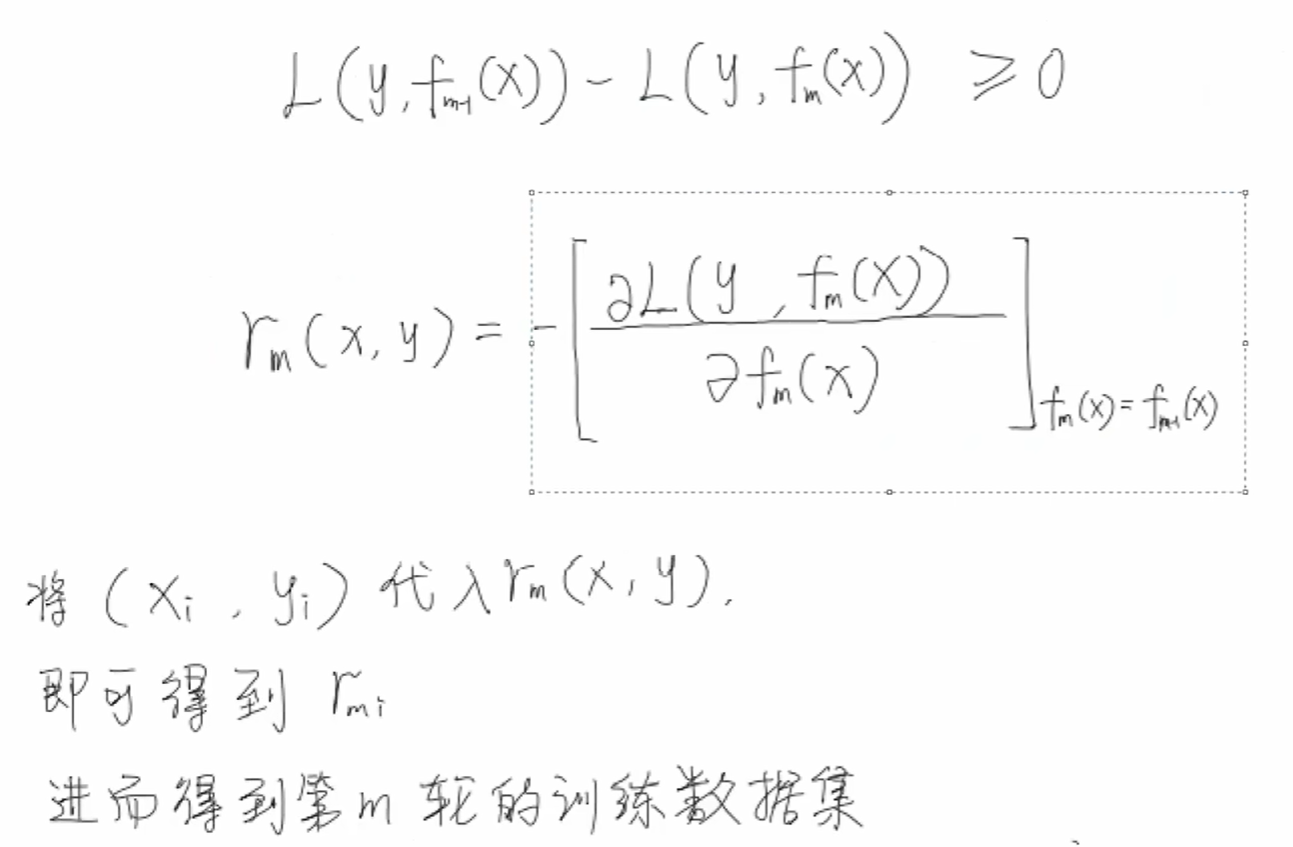 L(y,fₘ₋₁(x))-L(y,fₘ(x)) ≥0
rₘ(x,y)=-[∂L(y,fₘ(x))/∂fₘ(x)]fₘ(x)=fₘ₋₁(x)
将(xᵢ,yᵢ)代入rₘ(x,y),
即可得到 rₘᵢ
进而得到第m轮的训练数据集